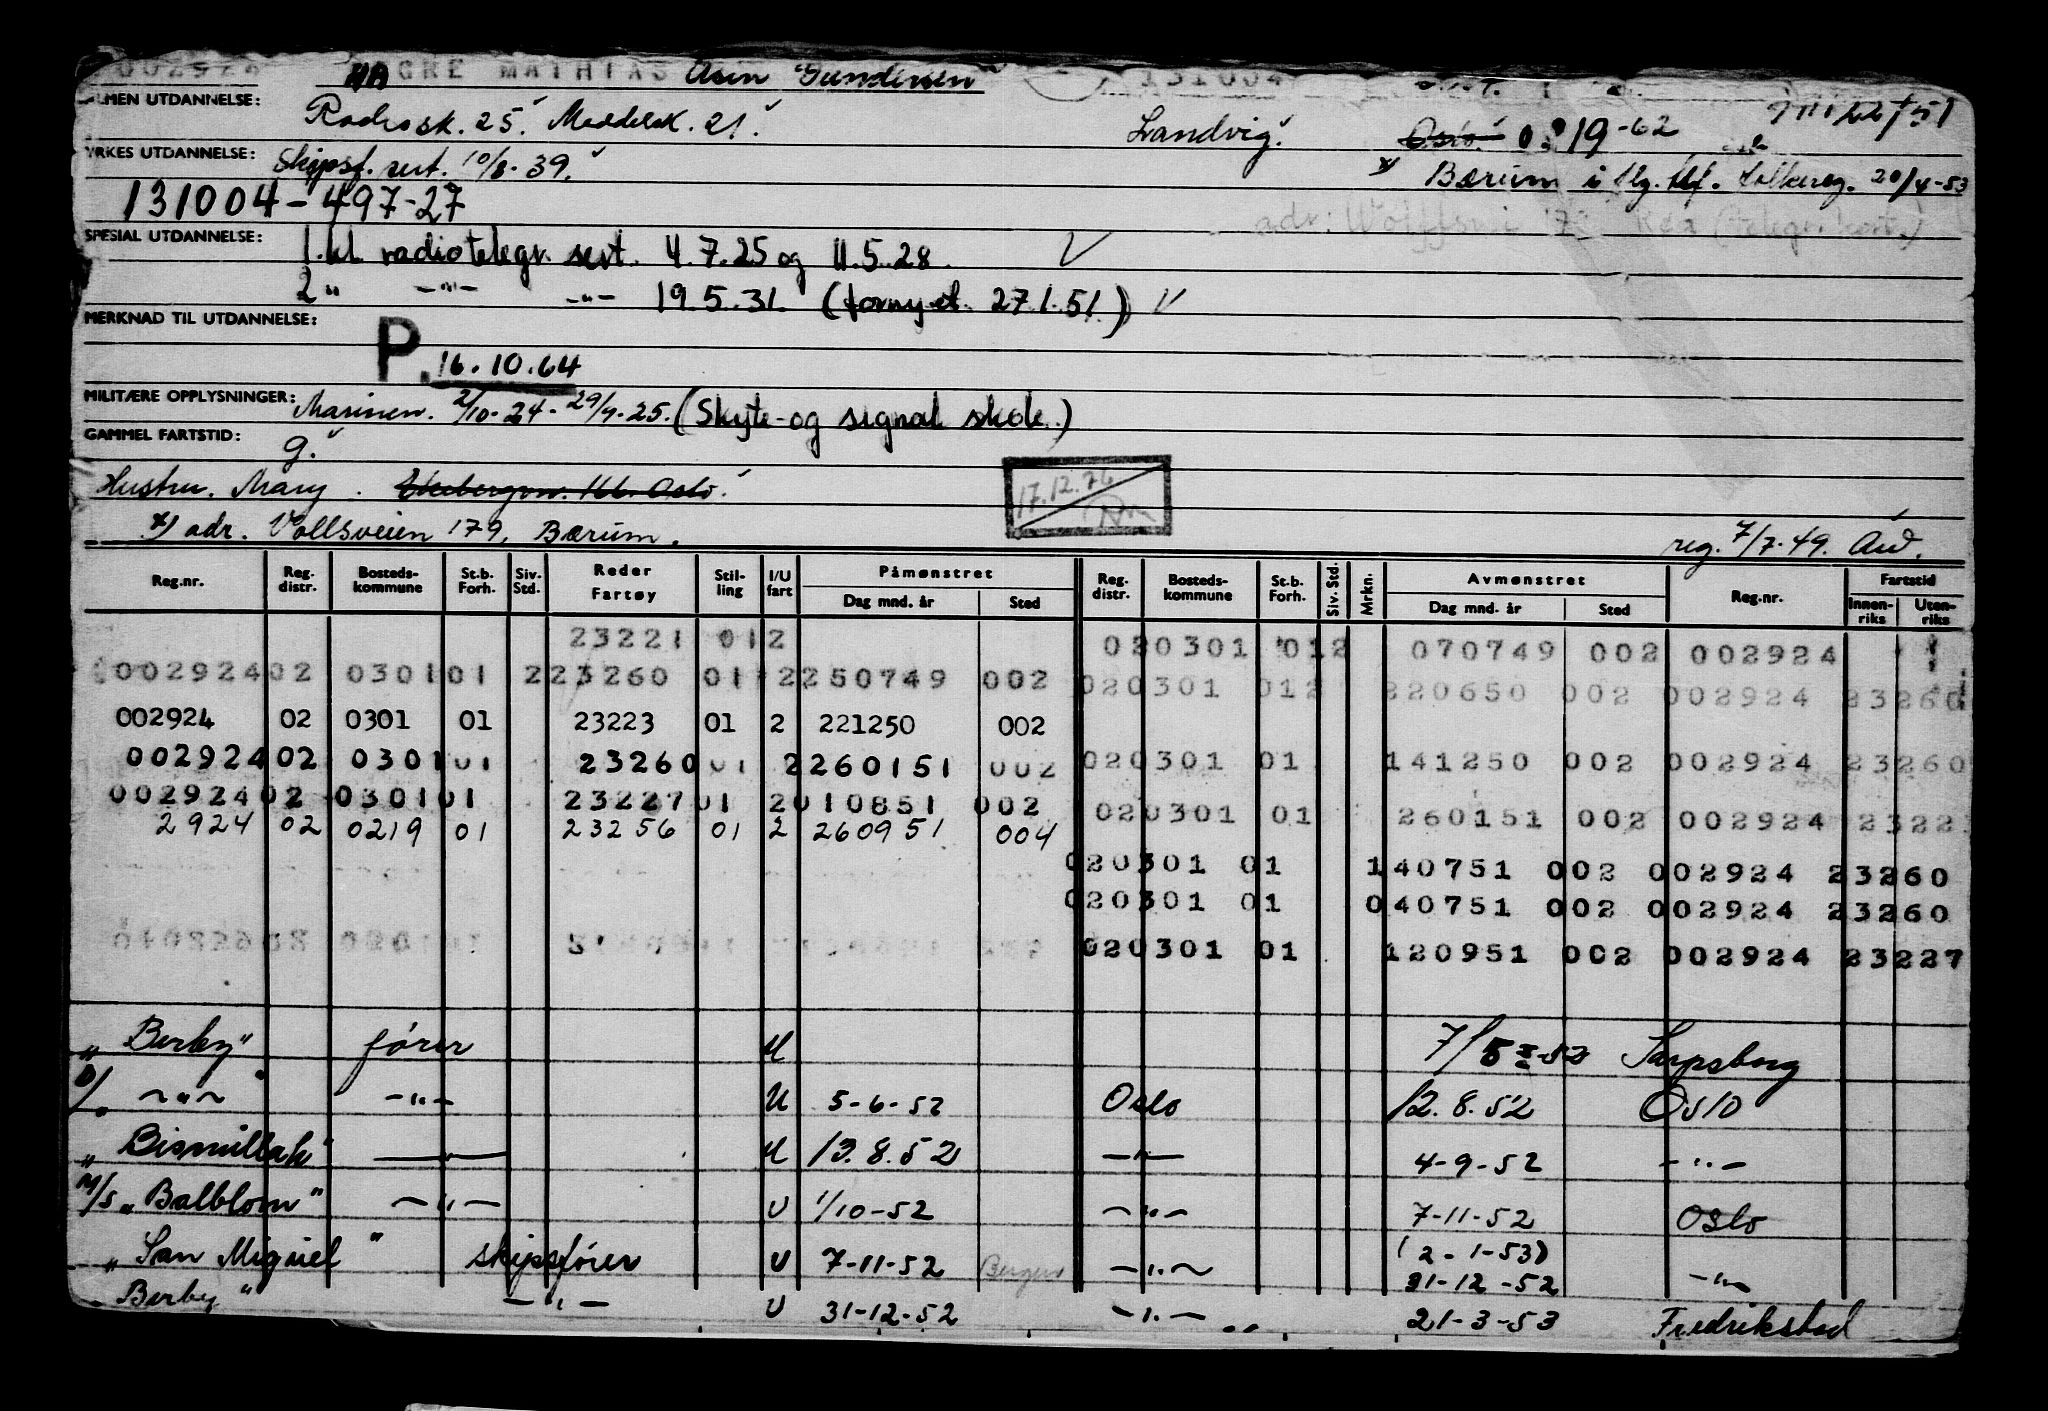 MATHIAS Asen "Gundersen" 131004
ALMEN UTDANNELSE: Radiosk. 25. Middelsk. 21. Landvig. Oslo 0219-62
YRKES UTDANNELSE: Skipsf. sert. 10/8-39. x) Bærum i flg. tlf. folkereg. 20/4-53
131004-497-27
SPESIAL UTDANNELSE: 1. kl. radiotelegr. sert. 4.7.25 og 11.5.28.
2 " -"- -"- 19.5.31. (fornyet 27.1.51)
MERKNAD TIL UTDANNELSE:
P. 16.10.64
MILITÆRE OPPLYSNINGER: Marinen. 2/10-24-29/9-25. (Skyte- og signal skole.)
GAMMEL FARTSTID: 9.
Hustru. Mary. Ekebergvn. 166. Oslo. 17.12.76
x) adr. Vollsveien 179, Bærum. reg. 7/7-49.
Reg.nr. Reg. distr. Bosteds-kommune St.b. Forh. Siv. Std. Reder Fartøy Stil-ling I/U fart Påmønstret Dag mnd. år Sted Reg. distr. Bosteds-kommune St.b. Forh. Siv. Std. Mrkn. Avmønstret Dag mnd. år Sted Reg.nr. Fartstid Innen-riks Uten-riks
23221 012 020301 012 070749 002 002924
002924 02 0301 01 2 23260 01 2 250749 002 020301 012 220650 002 002924 23260
002924 02 0301 01 23223 01 2 221250 002
002924 02 0301 01 23260 01 2 260151 002 020301 01 141250 002 002924 23260
002924 02 0301 01 23227 01 2 010851 002 020301 01 260151 002 002924 2322
2924 02 0219 01 23256 01 2 260951 004
020301 01 140751 002 002924 23260
020301 01 040751 002 002924 23260
020301 01 120951 002 002924 23227
"Berby" fører U 7/5-52 Sarpsborg
D/s -"- -"- U 5-6-52 Oslo 12.8.52 Oslo
"Bismillah" -"- U 13.8.52 -"- 4-9-52 -"-
M/S "Balblom" -"- U 1/10-52 -"- 7-11-52 Oslo
"San Miguel" skipsfører U 7-11-52 Bergen -"- (2-1-53) 31-12-52 -"-
"Berby" -"- U 31-12-52 -"- 21-3-53 Fredrikstad